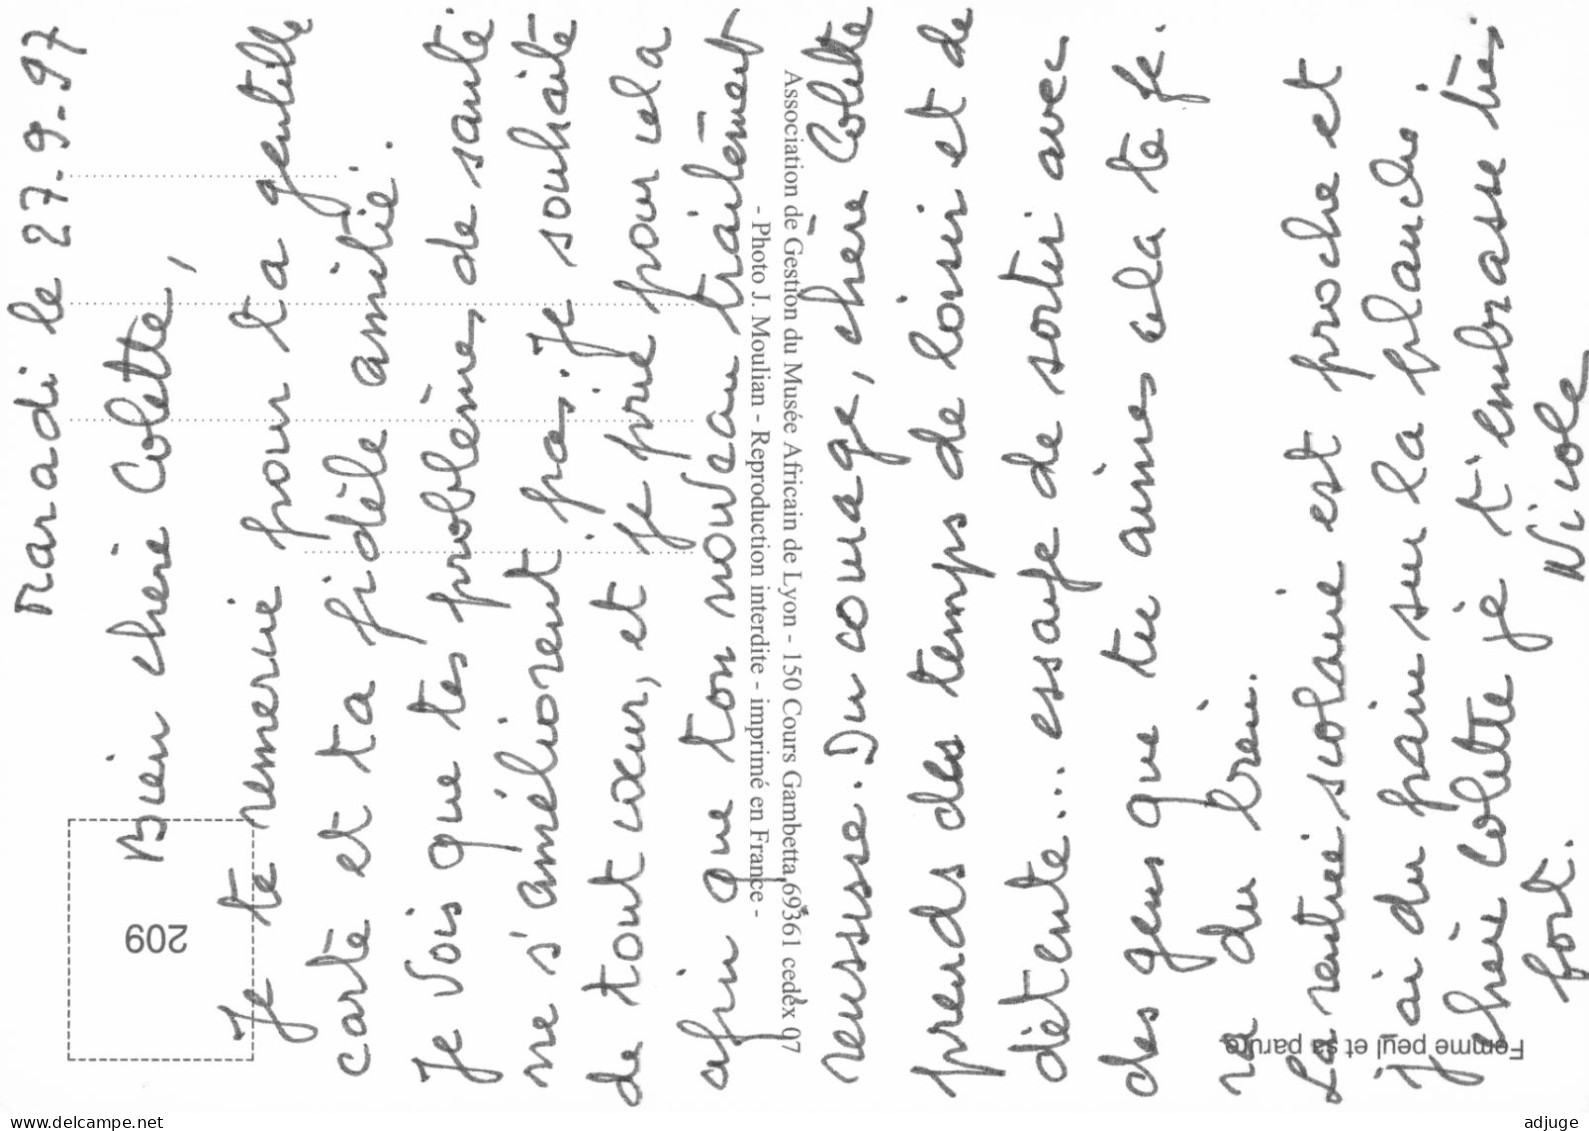 Maradi le 27-9-97
Bien chère Colette,
Je te remercie pour ta gentille
carte et ta fidèle amitié.
Je vois que tes problèmes de santé
ne s'améliorent pas. Je souhaite
de tout cœur, et je prie pour cela
afin que ton nouveau traitement
reusisse. Du courage, chère Colette
prends des temps de loisir et de
détente... essaye de sortir avec
des gens que tu aimes cela te fe-
ra du bien.
La rentrée scolaire est proche et
j'ai du pain sur la planche
chère Colette je t'embrasse très
fort. Nicole
Association de Gestion du Musée Africain de Lyon - 150 Cours Gambetta 69361 cedex 07
- Photo J. Moulian - Reproduction interdite - imprimé en France -
209
Femme peul et sa parure
www.delcampe.net
adjuge